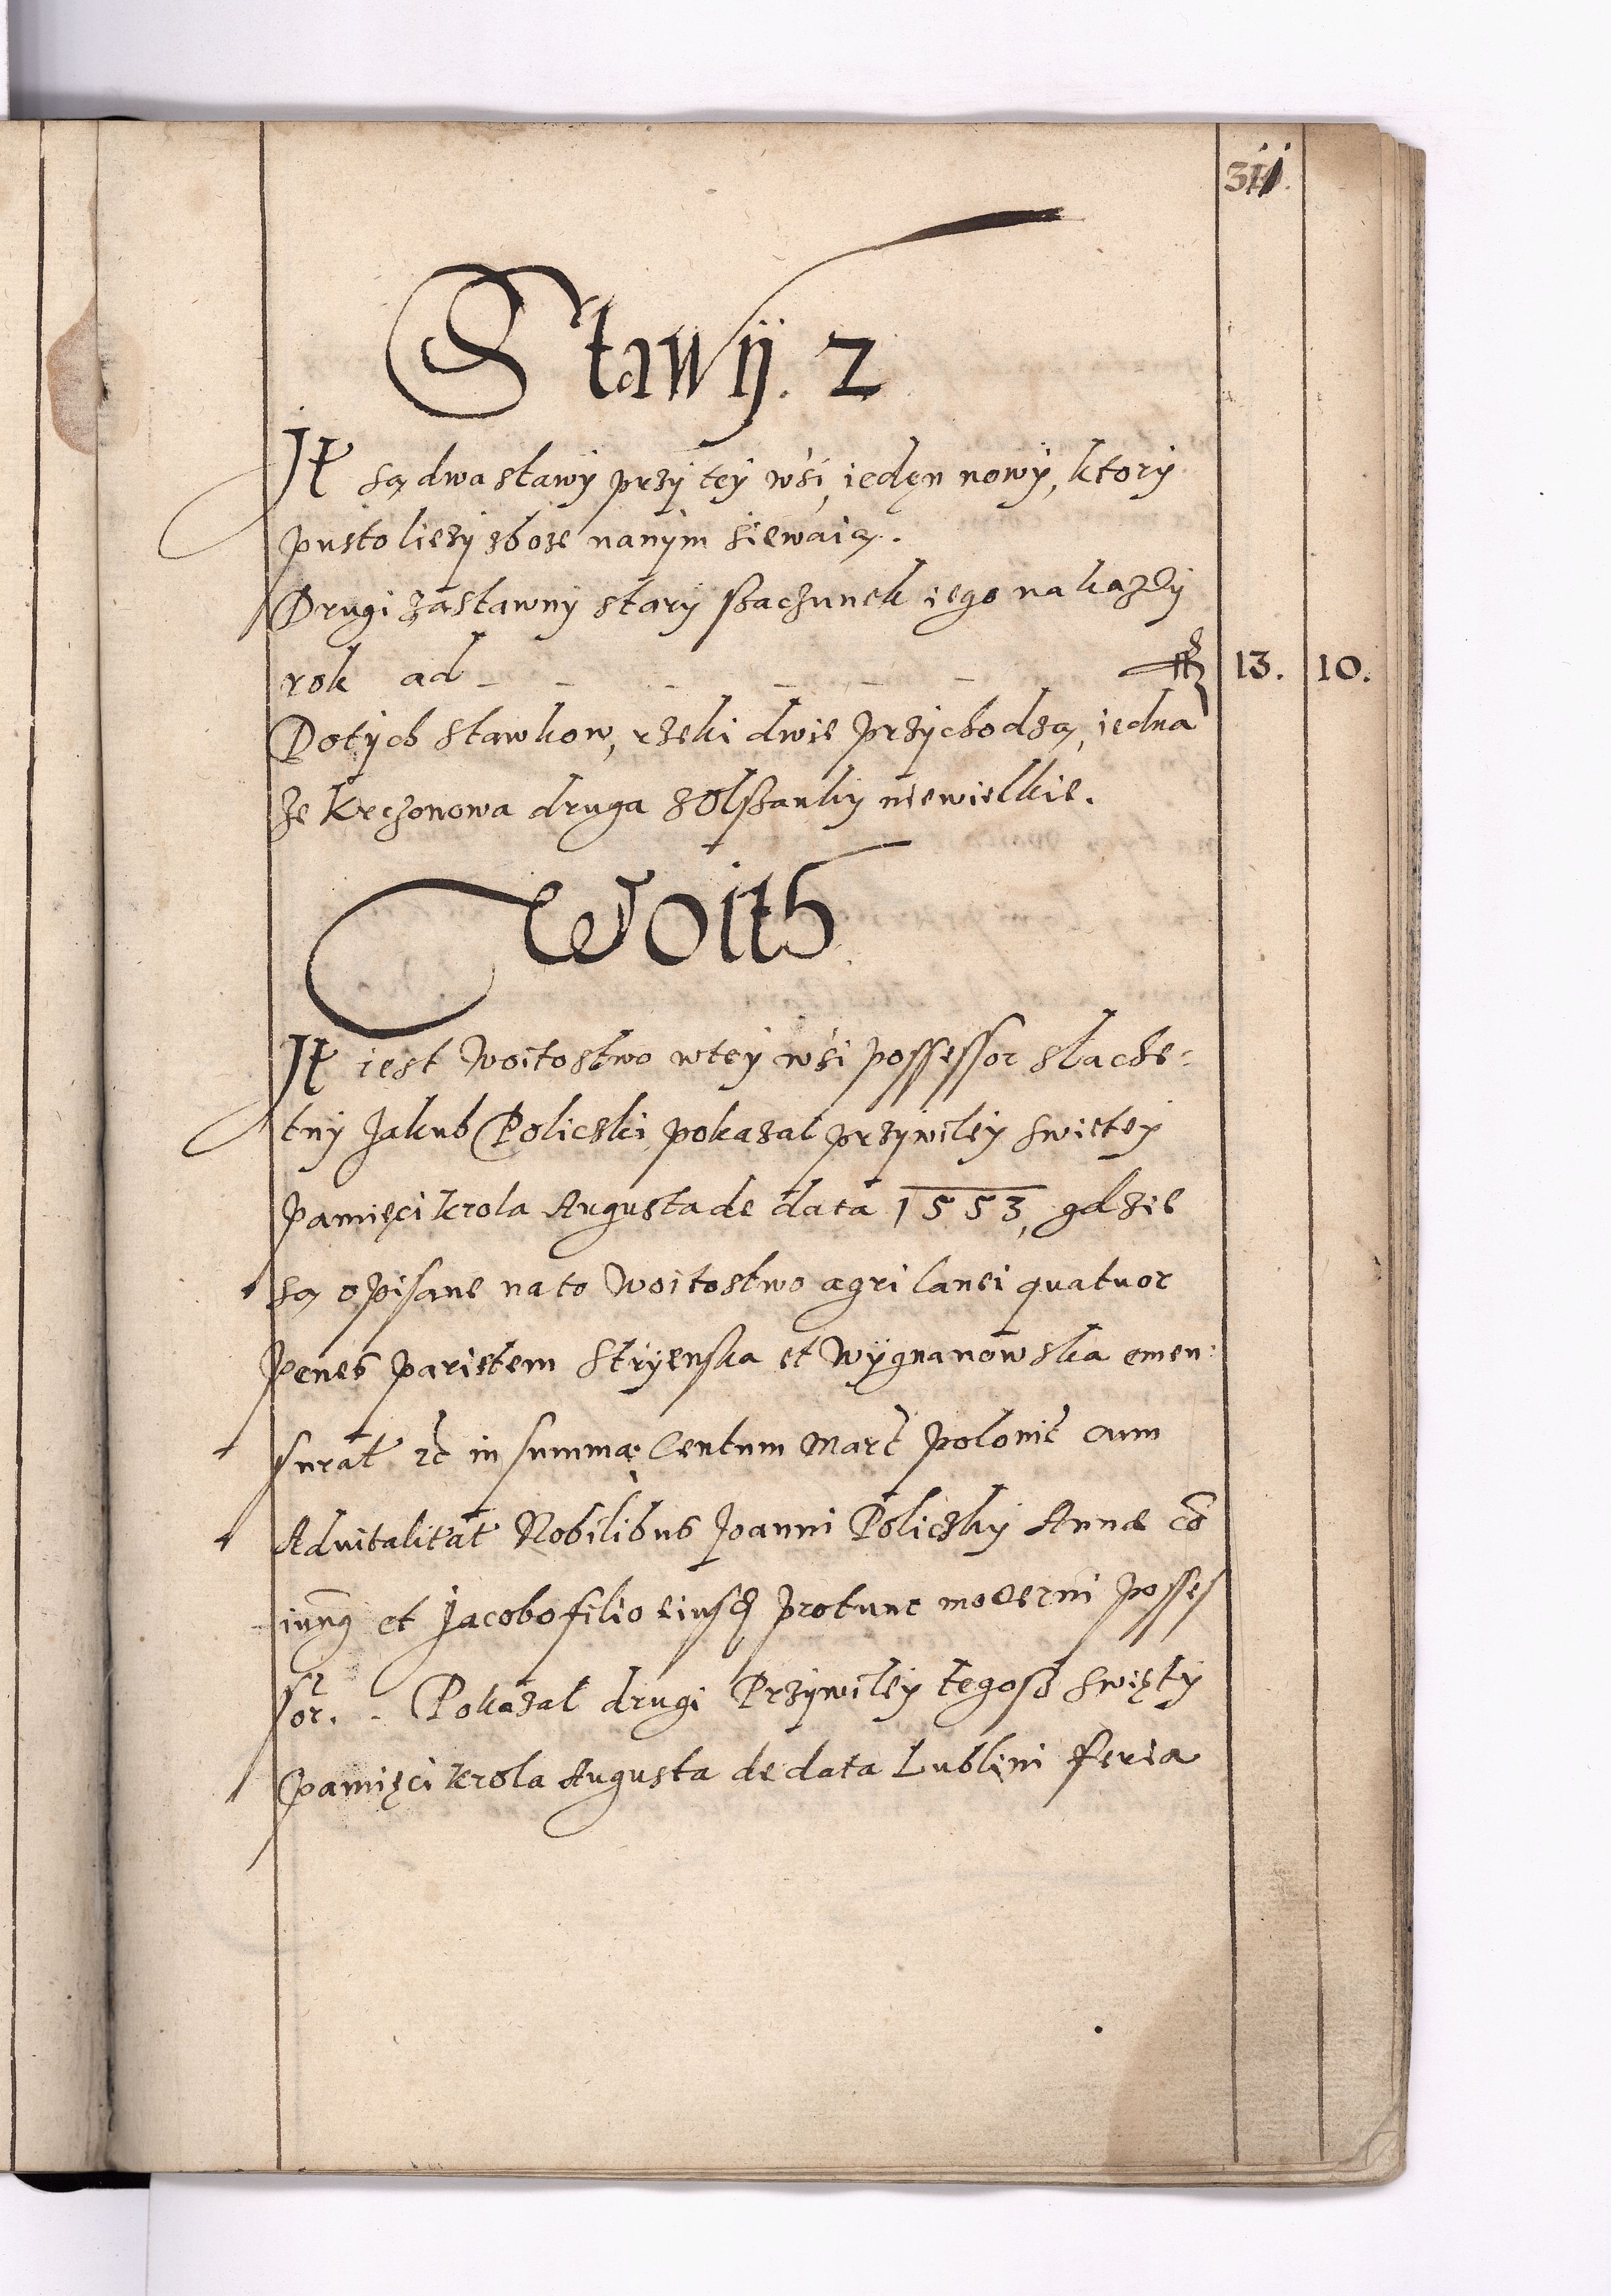 Stawÿ. 2
Jt są dwa stawy przÿ teÿ wsi, iedęn nowÿ, ktorÿ
pusto lieżÿ zboże nanÿm siewaią.
Drugi zastawnÿ starÿ szaczunek iego na każdÿ
rok ad - - - - - - 13. 10.
Do tÿch stawkow, rzeki dwie przÿchodzą, iedna
ze Krczonowa druga z Olszankÿ niewielkie.
Woith
Jt iest Woitostwo w teÿ wsi possessor slache:
tnÿ Jakub Policzki pokazal prziwileÿ swietey
Pamięci krola Augusta de data 1553, gdzie
są opisane na to Woitostwo agri lanei quatuor
penes parietem Strÿenska et Wÿgnanowska emen:
surat in summa Centum Marc polonic cum
Aduitalitat Nobilibus Joanni Policzkÿ Annæ co
iung et Jacobo filio eiusd protunc moderni posses
sor. - Pokazal drugi Prziwileÿ tegosz swiętÿ
Pamięci krola Augusta de data Lublini feria